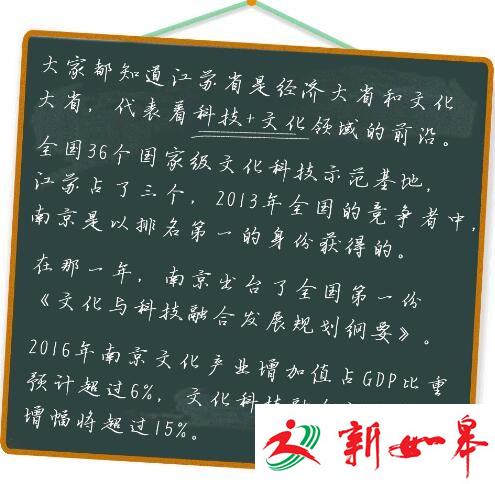 大家都知道江苏省是经济大省和文化
大省，代表着科技+文化领域的前沿。
全国36个国家级文化科技示范基地，
江苏占了三个，2013年全国的竞争者中，
南京是以排名第一的身份获得的。
在那一年，南京出台了全国第一份
《文化与科技融合发展规划纲要》。
2016年南京文化产业增加值占GDP比重
预计超过6%，文化科技融合
增幅将超过15%。
新如皋